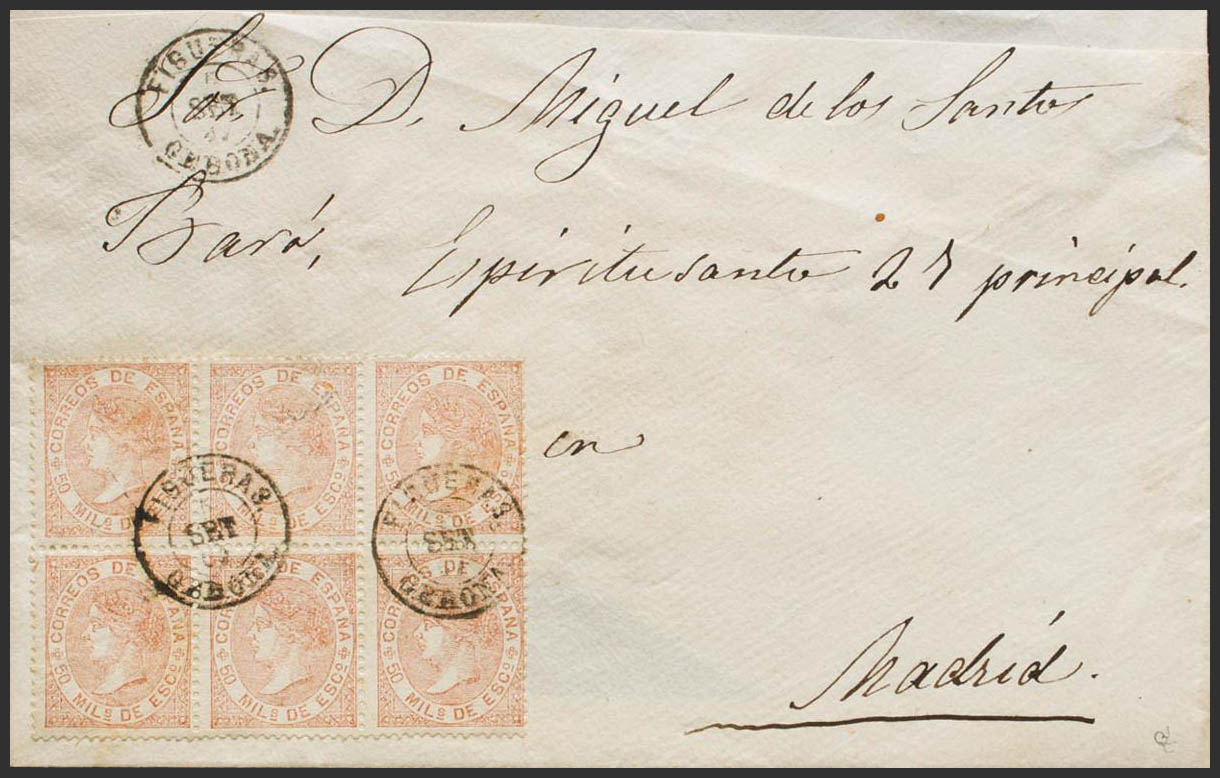 FIGUERAS.
SET
GERONA.
Sr. D. Miguel de los Santos
Baró, Espiritu santo 27 principal.
en
Madrid.
CORREOS DE ESPAÑA
50 MILS DE
CORREOS DE ESPAÑA
CORREOS DE ESPAÑA
50 MILS DE
FIGUERAS.
SET
GERONA
FIGUERAS
SET
GERONA
CORREOS DE ESPAÑA
50 MILS DE ESCO
CORREOS DE ESPAÑA
50 MILS DE ESCO
50 MILS DE ESCO